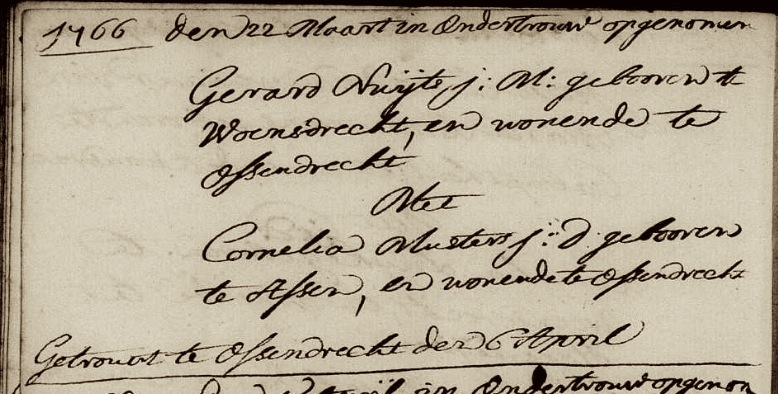 1766 den 22 Maart in Ondertrouw opgenomen
Gerard Nuijts, j: M: gebooren te
Woensdrecht, en wonende te
Ossendrecht
Met
Cornelia Musters j: D gebooren
te Essen, en wonende te Ossendrecht
Getrouwt te Ossendrecht den 6 April
in Ondertrouw opgenom